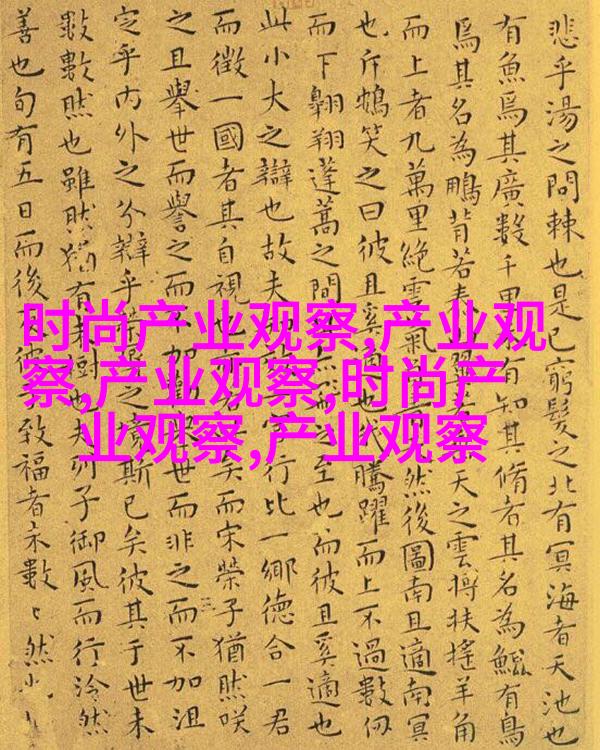 悲乎湯之問棘也是已窮髮之北有冥海者天池也
有魚焉其廣數千里有知其脩者其名為鯤有鳥
焉其名為鵬背若天之雲摶扶搖羊角
而上者九萬里絕雲氣然後圖南且適南冥
也斥鴳笑之曰彼且奚適也騰躍而上不過數仞
而下翱翔蓬蒿之間至也而彼且奚適也
此小大之辯也故夫行比一鄉德合一君
而徵一國者其自視也亦矣而宋榮子猶然咲
之且舉世而譽之而不加勸世而非之而不加沮
定乎內外之分辯乎榮之境斯已矣彼其于世未
數數然也雖然猶有未樹也夫列子御風而行泠然
善也旬有五日而後反彼于致福者未數々然
时尚产业观察,产业观
察,产业观察,时尚产
业观察,产业观察